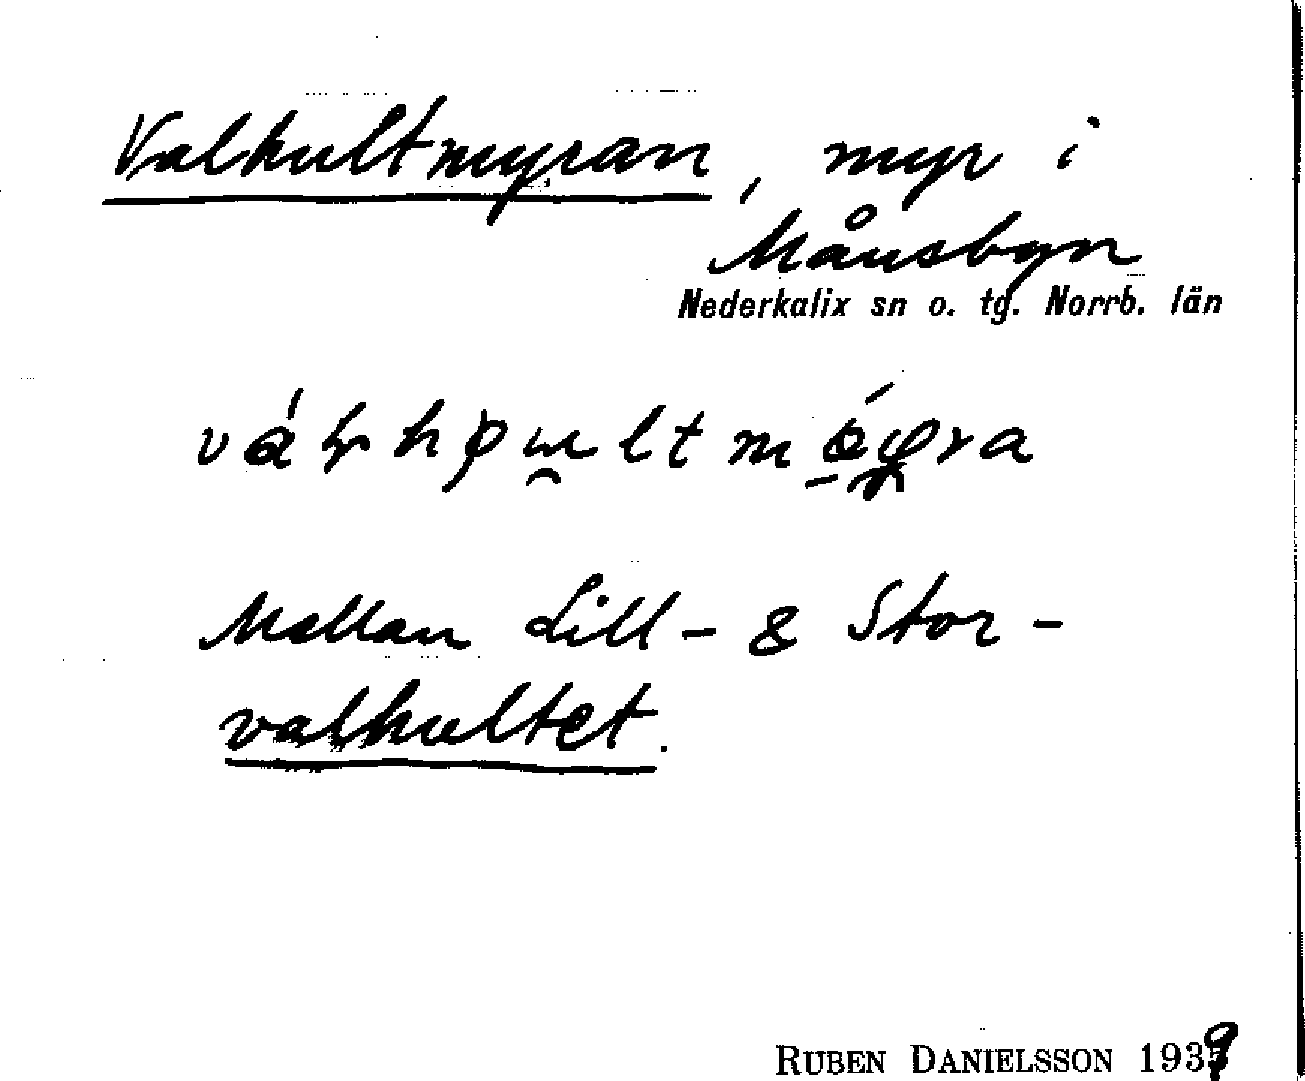 Valkultmyran, myr i
Månsbyn
Nederkalix sn o. tg. Norrb. län
Mellan Lill- & Stor-
valkultet.
RUBEN DANIELSSON 1939